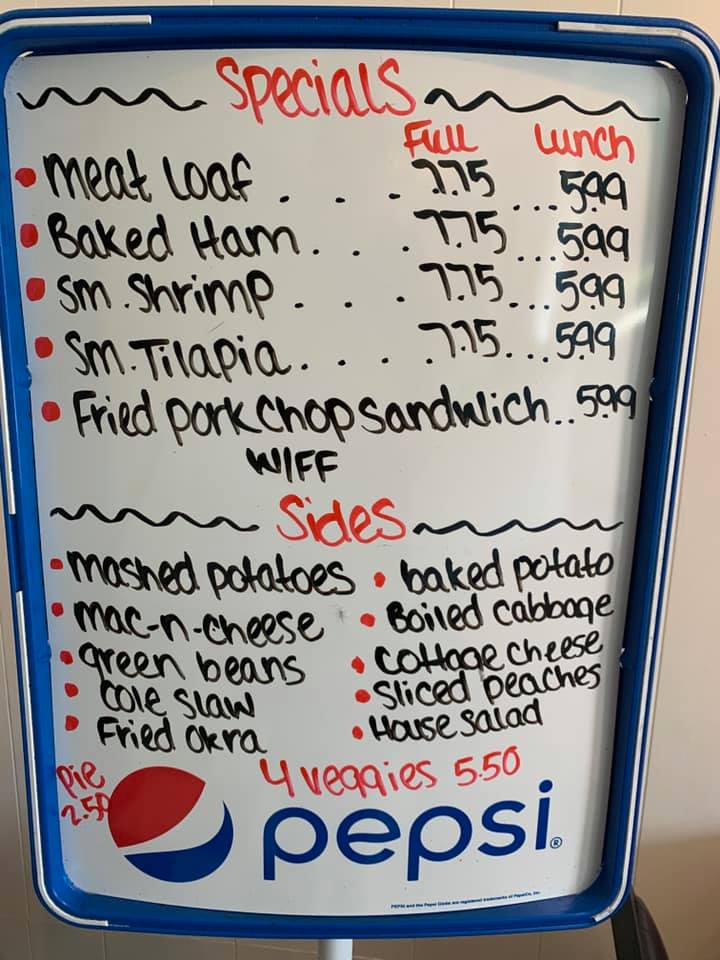 Specials
Full Lunch
• Meat Loaf . . . 7.75 ... 5.99
• Baked Ham . . . 7.75 ... 5.99
• Sm. Shrimp . . . 7.75 ... 5.99
• Sm. Tilapia . . . . 7.75 ... 5.99
• Fried pork chop sandwich .. 5.99
W/FF
Sides
• mashed potatoes • baked potato
• mac-n-cheese • Boiled cabbage
• green beans • Cottage cheese
• Cole Slaw • Sliced peaches
• Fried Okra • House Salad
Pie
2.50
4 veggies 5.50
pepsi®
PEPSI and the Pepsi Globe are registered trademarks of PepsiCo, Inc.